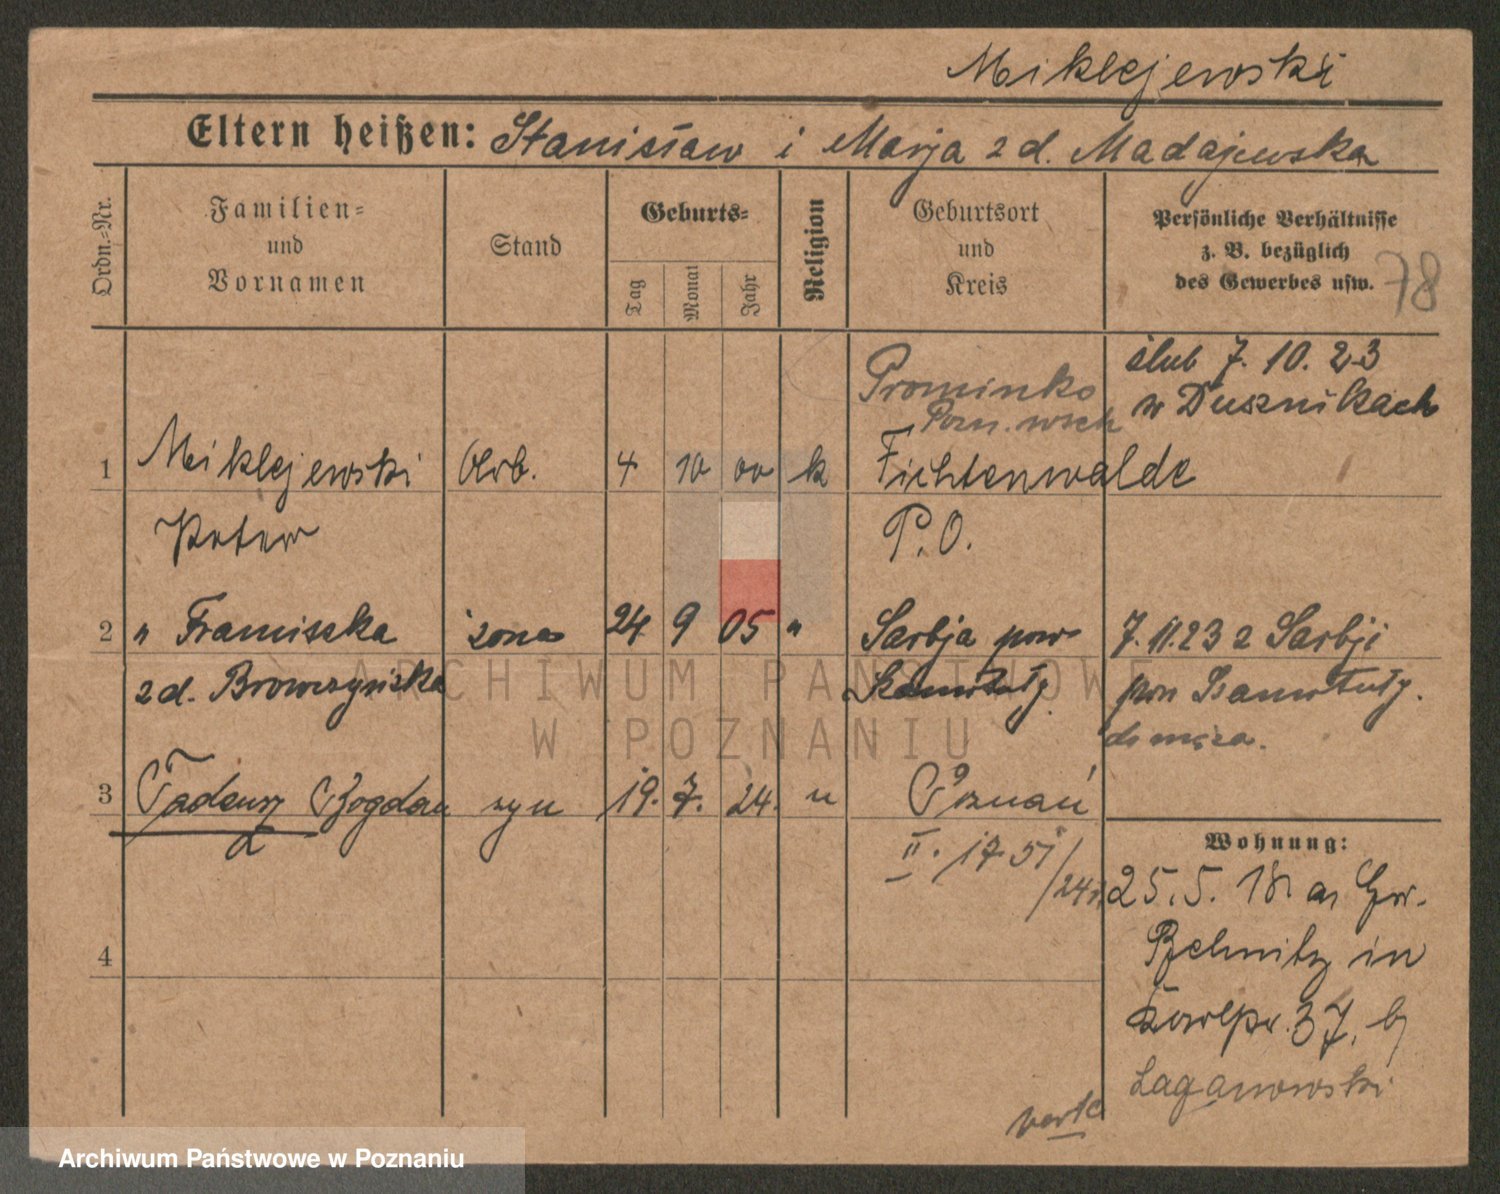 Miklejewski
Eltern heißen: Stanisław i Marja z d. Madajewska
Ordn.-Nr.
Familien-
und
Vornamen
Stand
Geburts-
Tag
Monat
Jahr
Religion
Geburtsort
und
Kreis
Persönliche Verhältnisse
z. B. bezüglich
des Gewerbes usw.
78
ślub 7. 10. 23
w Dusznikach
Prominko
Pozn. wsch
1 Miklejewski Arb. 4 10 00 k Fichtenwalde
Peter P. O.
2 " Franciszka żona 24 9 05 " Sarbja pow 7. 11. 23 z Sarbji
z d. Browczyńska Szamotuły pow Szamotuły.
do męża.
3 Tadeusz Bogdan syn 19. 7. 24. " Poznań
II. 1751/24
Wohnung:
25. 5. 18. a
in
37. b/
Laganowski
4
verte
ARCHIWUM PAŃSTWOWE
W POZNANIU
Archiwum Państwowe w Poznaniu